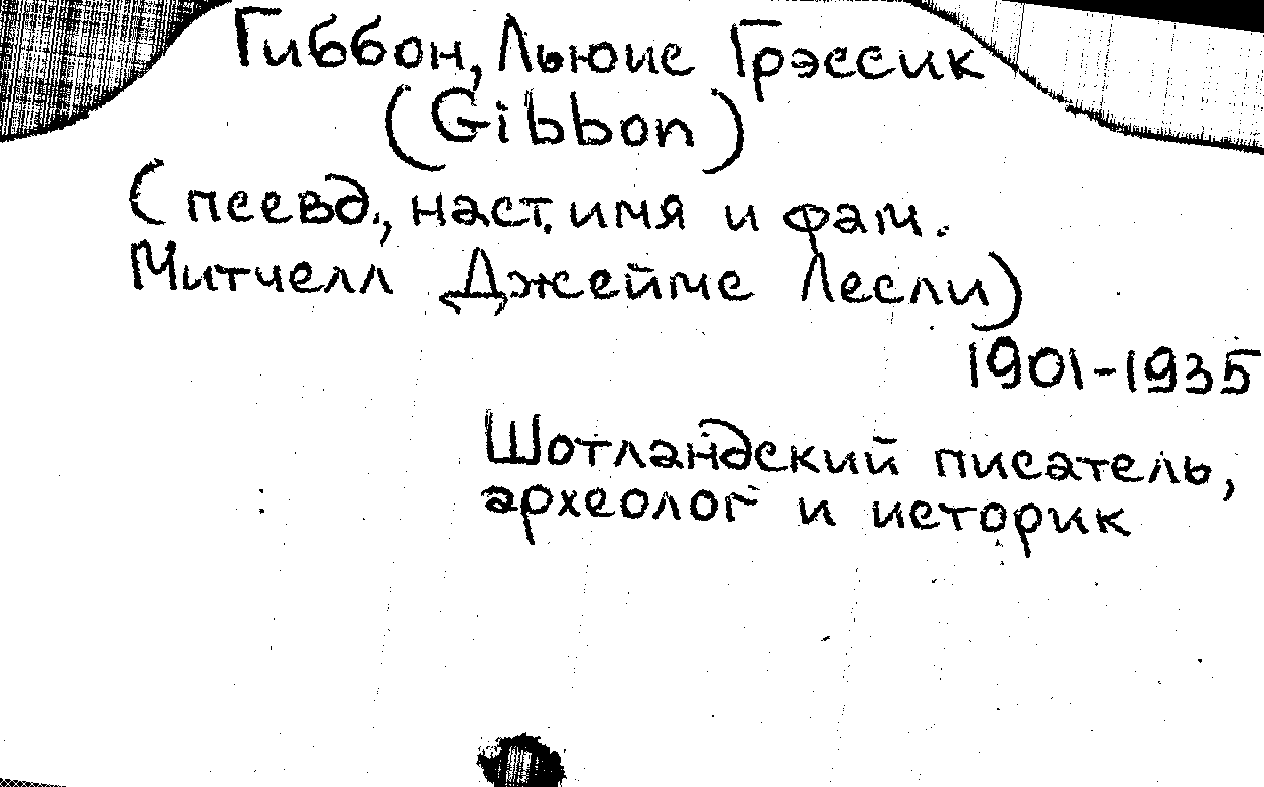 Гиббон, Льюис Грэссик
(Gibbon)
(псевд., наст. имя и фам.
Митчелл Джеймс Лесли)
1901-1935
Шотландский писатель,
археолог и историк